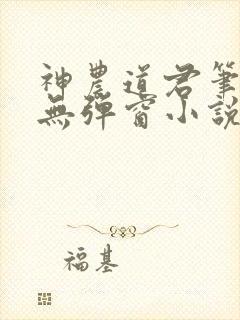 神農道君筆
無彈窗小說
福基